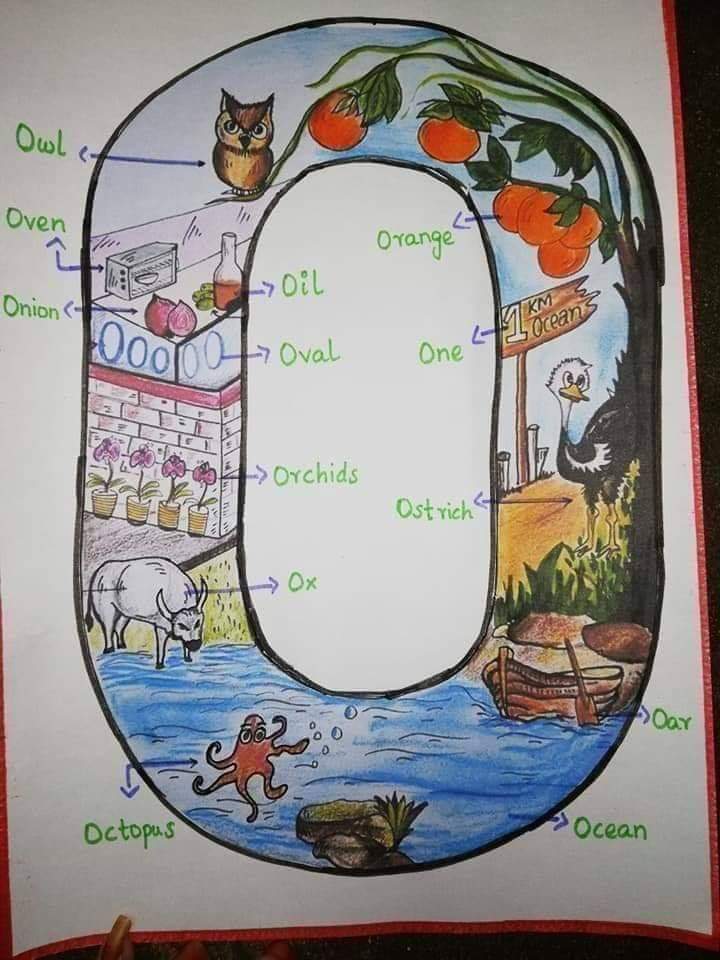 Owl
Oven
Onion
Oil
Oval
Orange
1 KM
Ocean
One
Orchids
Ostrich
Ox
Oar
Octopus
Ocean